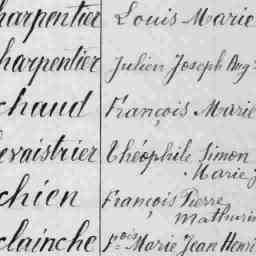 harpentier Louis Marie
harpentier Julien Joseph Aug.
chaud François Marie
evaistrier Théophile Simon
Marie J
chien François Pierre
Mathurin
clainche Fçois Marie Jean Henri